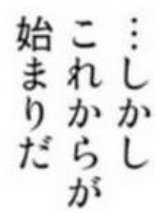 …しかし
これからが
始まりだ